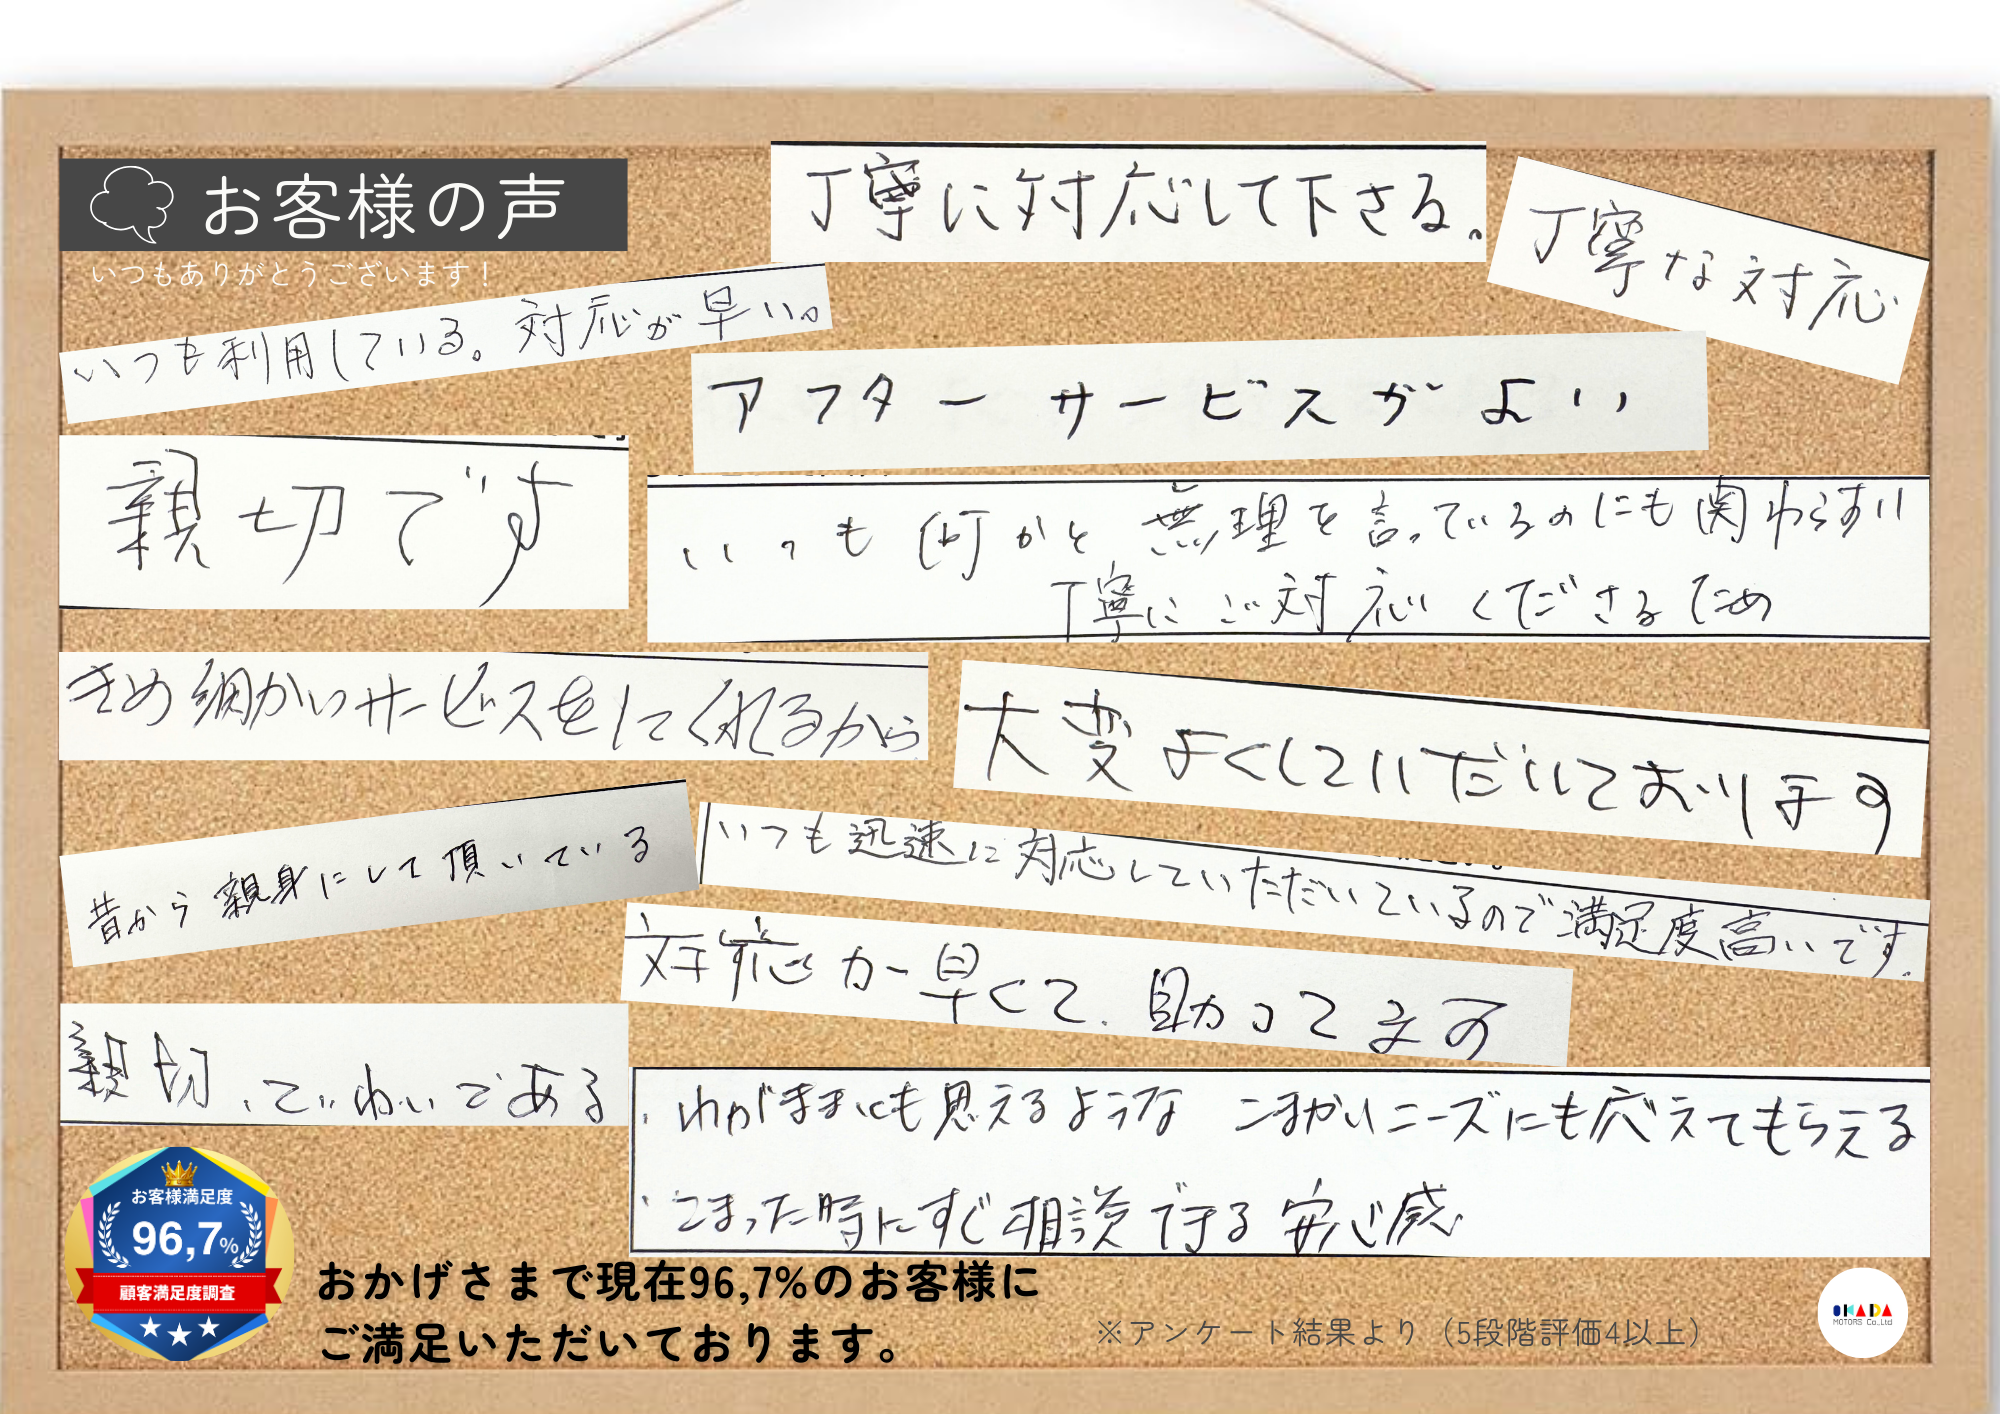 お客様の声
いつもありがとうございます！
丁寧に対応して下さる。
丁寧な対応
いつも利用している。対応が早い。
アフターサービスがよい
親切です
いつも何かと無理を言っているのにも関わらずいい
丁寧にご対応くださるため
きめ細かいサービスをしてくれるから
大変よくしていただいております
昔から親身にして頂いている
いつも迅速に対応していただいているので満足度高いです。
対応が早くて、助かってます
親切、ていねいである
・わがままにも思えるような こまかいニーズにも応えてもらえる
・こまった時にすぐ相談できる安心感
お客様満足度
96,7%
顧客満足度調査
おかげさまで現在96,7%のお客様に
ご満足いただいております。
※アンケート結果より（5段階評価4以上）
OKADA
MOTORS Co.,Ltd